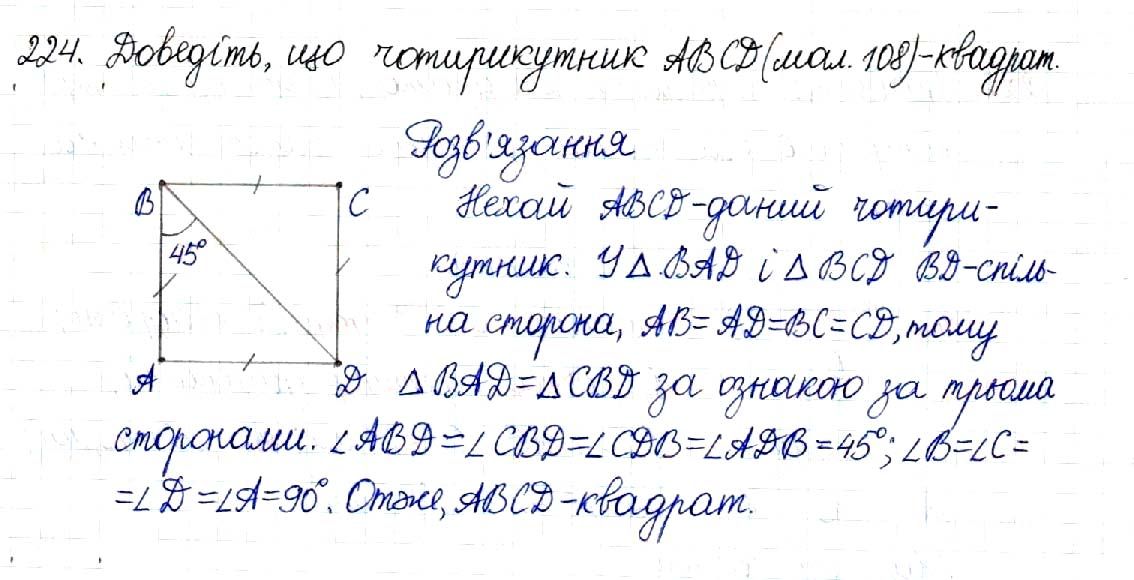 224. Доведіть, що чотирикутник ABCD (мал. 108) - квадрат.
Розв'язання
B
C
45°
A
D
Нехай ABCD - даний чотири-
кутник. У △ BAD і △ BCD BD - спіль-
на сторона, AB = AD = BC = CD, тому
△ BAD = △ CBD за ознакою за трьома
сторонами. ∠ABD = ∠CBD = ∠CDB = ∠ADB = 45°; ∠B = ∠C =
= ∠D = ∠A = 90°. Отже, ABCD - квадрат.